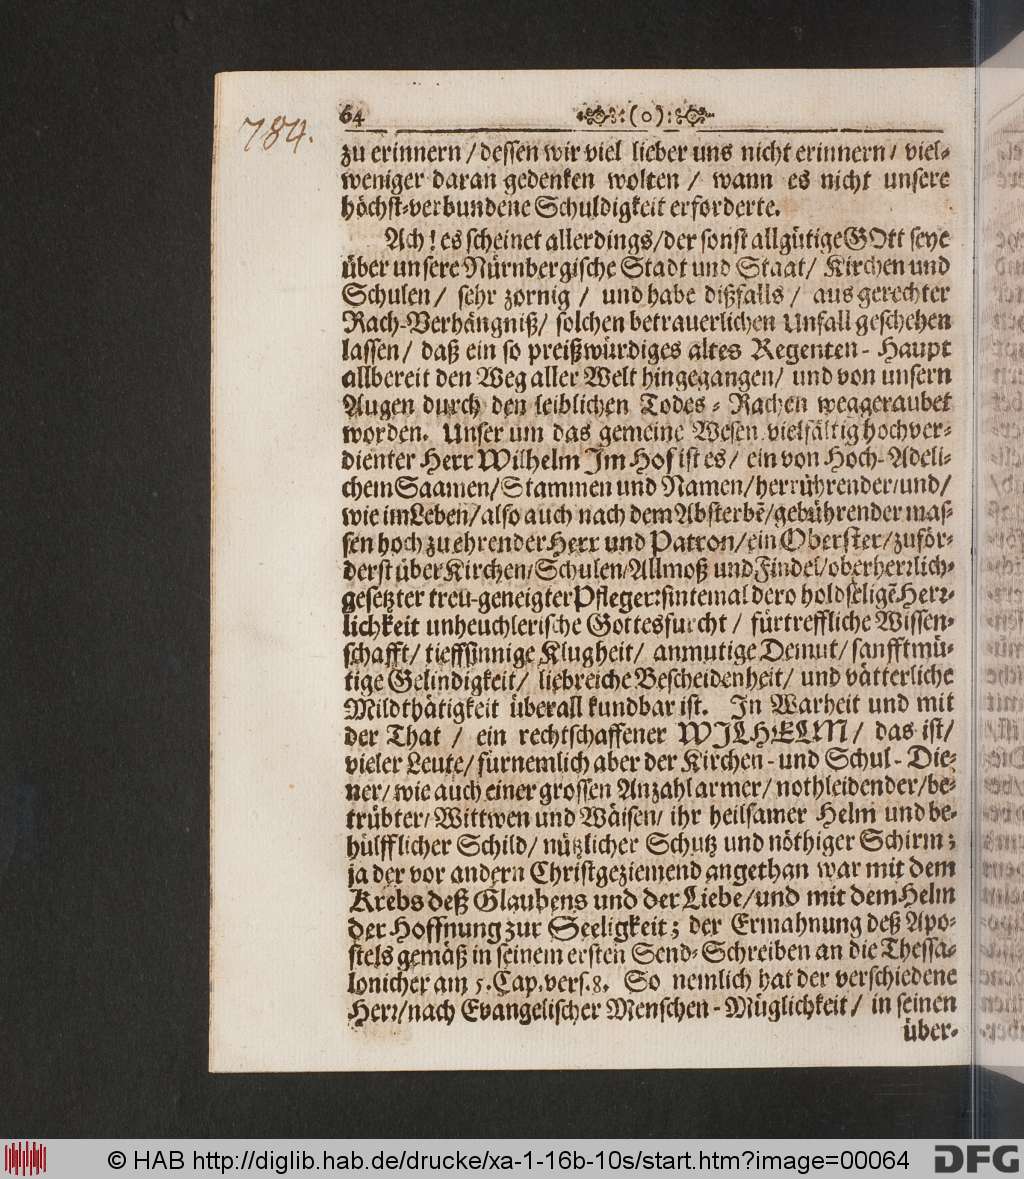 784.
64 (o)
zu erinnern / dessen wir viel lieber uns nicht erinnern / viel-
weniger daran gedenken wolten / wann es nicht unsere
höchst-verbundene Schuldigkeit erforderte.
Ach! es scheinet allerdings / der sonst allgütige GOtt seye
über unsere Nürnbergische Stadt und Staat / Kirchen und
Schulen / sehr zornig / und habe dißfalls / aus gerechter
Rach-Verhängniß / solchen betrauerlichen Unfall geschehen
lassen / daß ein so preißwürdiges altes Regenten-Haupt
allbereit den Weg aller Welt hingegangen / und von unsern
Augen durch den leiblichen Todes-Rachen weggeraubet
worden. Unser um das gemeine Wesen vielfältig hochver-
dienter Herr Wilhelm Im Hof ist es / ein von Hoch-Adeli-
chem Saamen / Stammen und Namen / herrührender / und /
wie im Leben / also auch nach dem Absterbẽ / gebührender mas-
sen hoch zu ehrender Herr und Patron / ein Oberster / zuför-
derst über Kirchen / Schulen / Allmoß und Findel / oberherrlich-
gesetzter treu-geneigter Pfleger: sintemal dero holdseligẽ Herr-
lichkeit unheuchlerische Gottesfurcht / fürtreffliche Wissen-
schafft / tieffsinnige Klugheit / anmutige Demut / sanfftmü-
tige Gelindigkeit / liebreiche Bescheidenheit / und vätterliche
Mildthätigkeit überall kundbar ist. In Warheit und mit
der That / ein rechtschaffener WILHELM / das ist /
vieler Leute / fürnemlich aber der Kirchen- und Schul-Die-
ner / wie auch einer grossen Anzahl armer / nothleidender / be-
trübter / Wittwen und Wäisen / ihr heilsamer Helm und be-
hülfflicher Schild / nützlicher Schutz und nöthiger Schirm;
ja der vor andern Christgeziemend angethan war mit dem
Krebs deß Glaubens und der Liebe / und mit dem Helm
der Hoffnung zur Seeligkeit; der Ermahnung deß Apo-
stels gemäß in seinem ersten Send-Schreiben an die Thessa-
lonicher am 5. Cap. vers. 8. So nemlich hat der verschiedene
Herr / nach Evangelischer Menschen-Müglichkeit / in seinen
über-
© HAB http://diglib.hab.de/drucke/xa-1-16b-10s/start.htm?image=00064
DFG